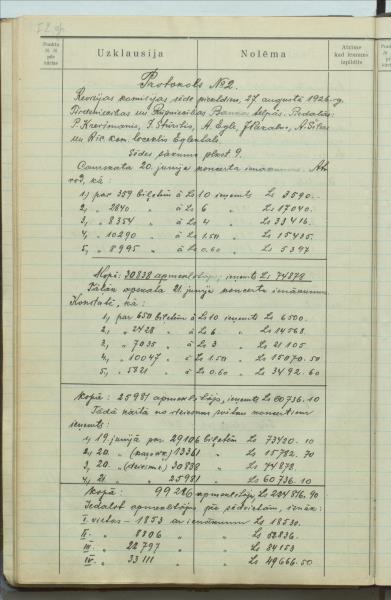 Punkta
№ №
pēc
kārtas
Uzklausīja
Nolēma
Atzīme
kad lēmums
izpildīts
Protokols №2.
Revizijas komisijas sēde piektdien, 27 augustā 1926.g.
Tirdzniecības un Rūpniecības Bankas telpās. Piedalās:
P. Kreišmanis, J. Stūrītis, A. Egle,
un Rīc. kom. loceklis Eglentals.
Sēdes sākums plkst 9.
Caurskata 20. junija koncerta ienākumus. At-
rod, ka:
1) par 359 biļetēm à Ls 10 ieņemts Ls 3590.-
2) " 2840 " à Ls 6 " Ls 17040.-
3) " 8354 " à Ls 4 " Ls 33416.-
4) " 10290 " à Ls 1.50 " Ls 15435.-
5) " 8995 " à Ls 0.60 " Ls 5397
Kopā: 30838 apmeklētāji, ieņemts Ls 74878
Tālāk apskata 21. junija koncerta ienākumus
Konstatē, ka:
1) par 650 biļetēm à Ls 10 ieņemts Ls 6500.-
2) " 2428 " à Ls 6 " Ls 14568.
3) " 7035 " à Ls 3 " Ls 21105
4) " 10047 " à Ls 1.50 " Ls 15070.50
5) " 5821 " à Ls 0.60 " Ls 3492.60
Kopā: 25981 apmeklētājs, ieņemts Ls 60736.10
Tādā kārtā no dziesmu svētku koncertiem
ieņemts:
1) 19. junijā par 29106 biļetēm Ls 73420.10
2) 20. " 13361 " Ls 15782.70
3) 20. " 30838 " Ls 74878.
4) 21. " 25981 " Ls 60736.10
Kopā: 99286 apmeklētāji, Ls 224816.90
Iedalot apmeklētājus pēc sēdvietām, iznāk:
I. vietas - 1853 ar ienākumu Ls 18530.
II. " 8806 " Ls 52836.
III. " 22797 " Ls 84153
IV. " 33111 " Ls 49666.50